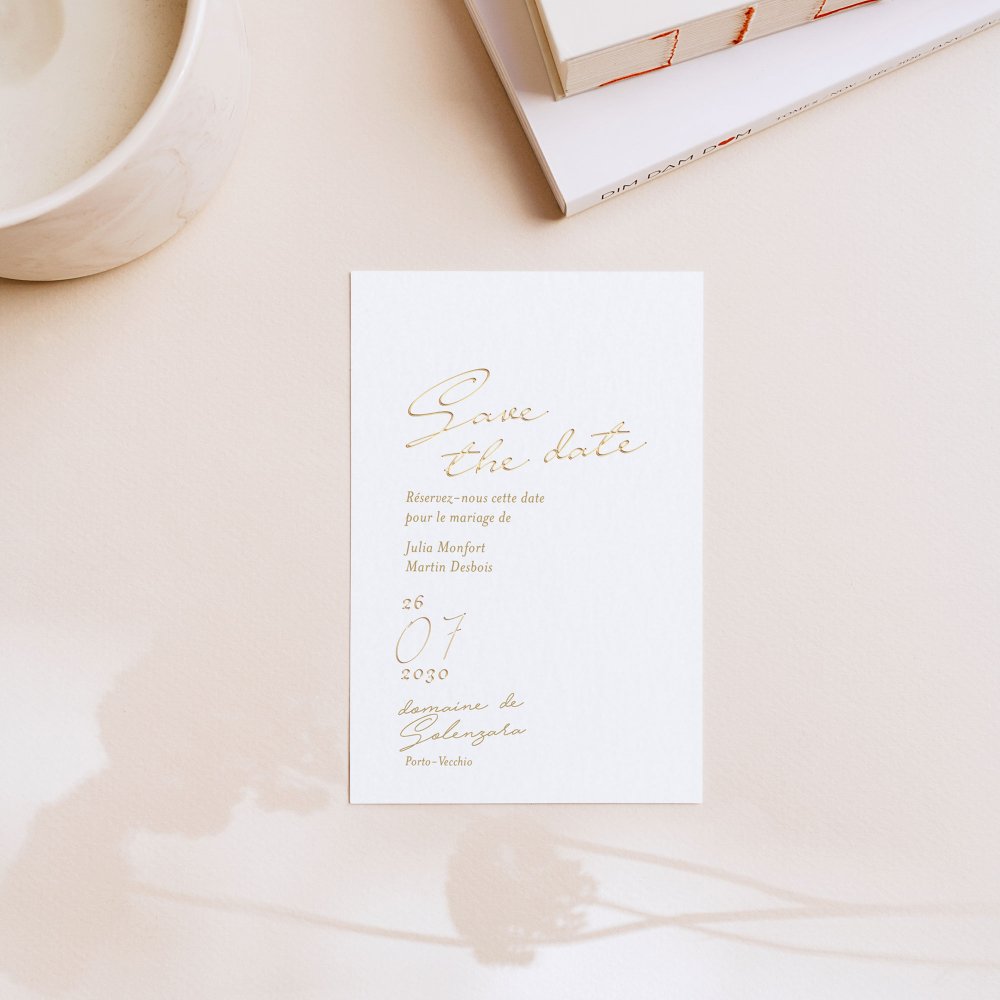 DIM DAM DOM TOME 8 NOV DÉC 2020 JANV FÉV
Save
the date
Réservez-nous cette date
pour le mariage de
Julia Monfort
Martin Desbois
26
07
2030
domaine de
Solenzara
Porto-Vecchio